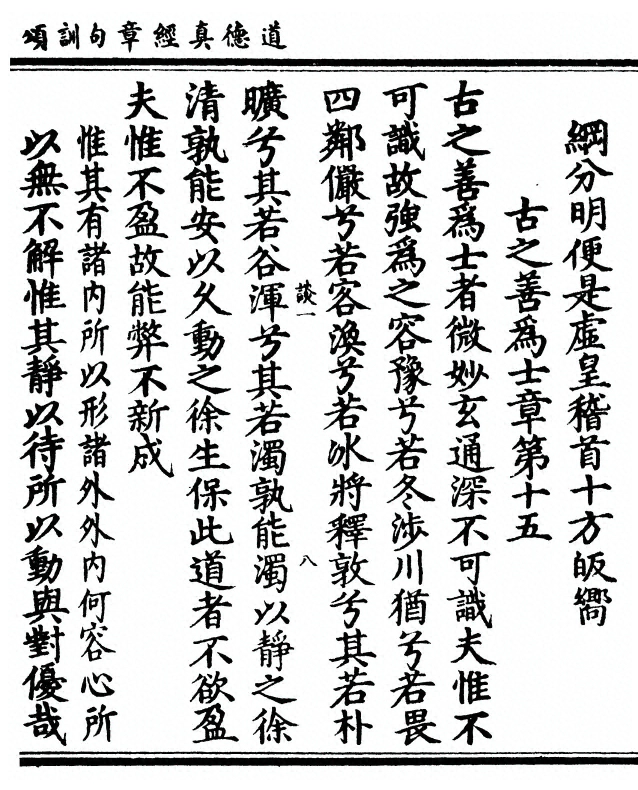 道德真經章句訓頌
綱分明便是虛皇稽首十方皈嚮
古之善爲士章第十五
古之善爲士者微妙玄通深不可識夫惟不
可識故強爲之容豫兮若冬涉川猶兮若畏
四鄰儼兮若客渙兮若冰將釋敦兮其若朴
談一
八
曠兮其若谷渾兮其若濁孰能濁以靜之徐
清孰能安以久動之徐生保此道者不欲盈
夫惟不盈故能弊不新成
惟其有諸内所以形諸外外内何容心所
以無不解惟其靜以待所以動與對優哉